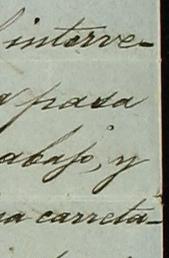 l'interve-
a para
abajo, y
na carreta-